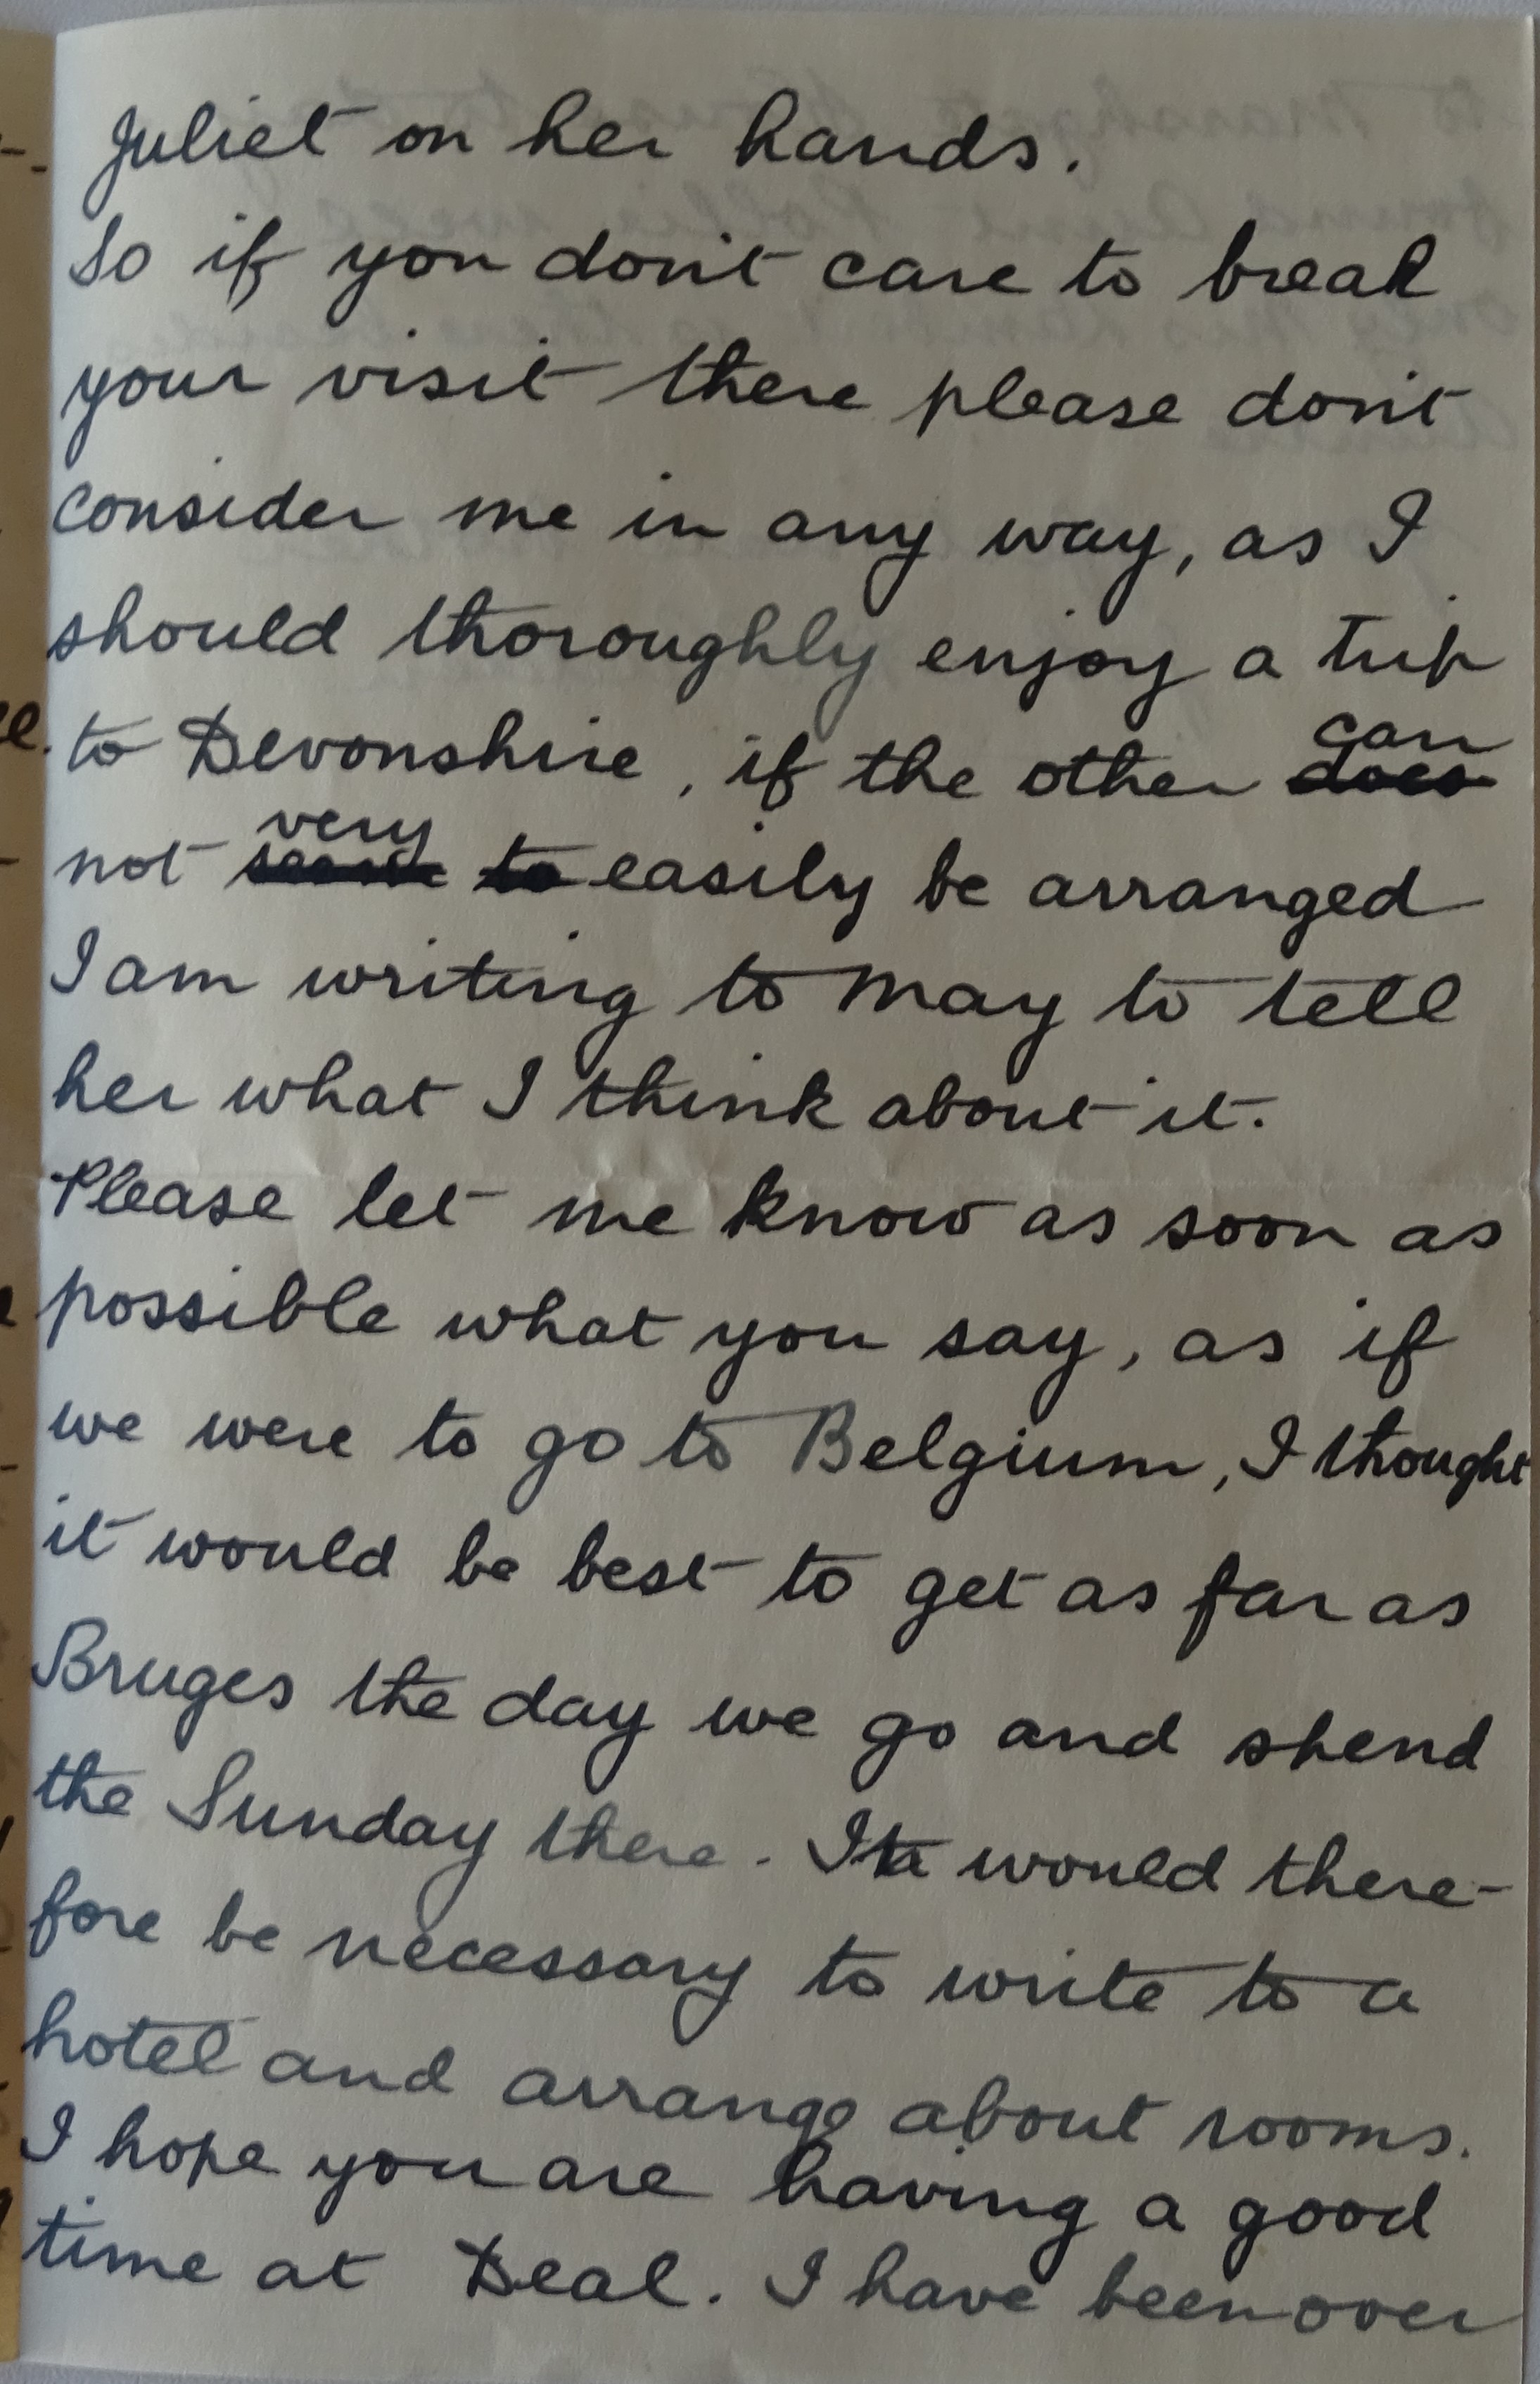 Juliet on her hands.
So if you don't care to break
your visit there please don't
consider me in any way, as I
should thoroughly enjoy a trip
to Devonshire, if the other can does
not very to easily be arranged
I am writing to May to tell
her what I think about it.
Please let me know as soon as
possible what you say, as if
we were to go to Belgium, I thought
it would be best to get as far as
Bruges the day we go and spend
the Sunday there. It would there-
fore be necessary to write to a
hotel and arrange about rooms.
I hope you are having a good
time at Deal. I have been over